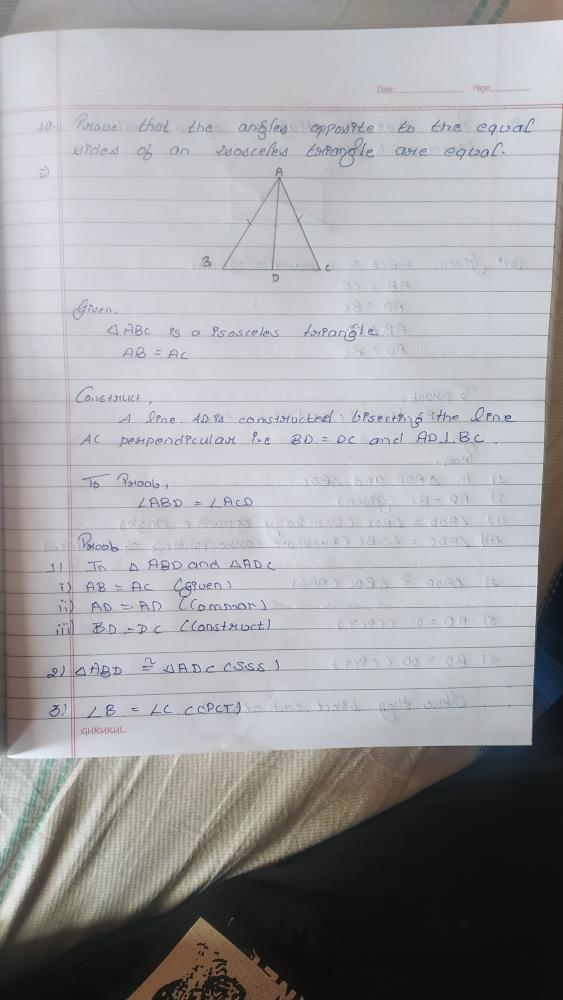 Date: Page:
10. Prove that the angles opposite to the equal
sides of an isosceles triangle are equal.
A
B C
D
Given,
△ABC is a isosceles triangle.
AB = AC
Construct,
A line AD is constructed bisecting the line
AC perpendicular i.e BD = DC and AD⊥BC.
To Proob,
∠ABD = ∠ACD
Proob,
1) In △ ABD and △ADC
i) AB = AC (given)
ii) AD = AD (Common)
iii) BD = DC (Construct)
2) △ABD ≅ △ADC (SSS)
3) ∠B = ∠C (CPCT)
GURUKUL